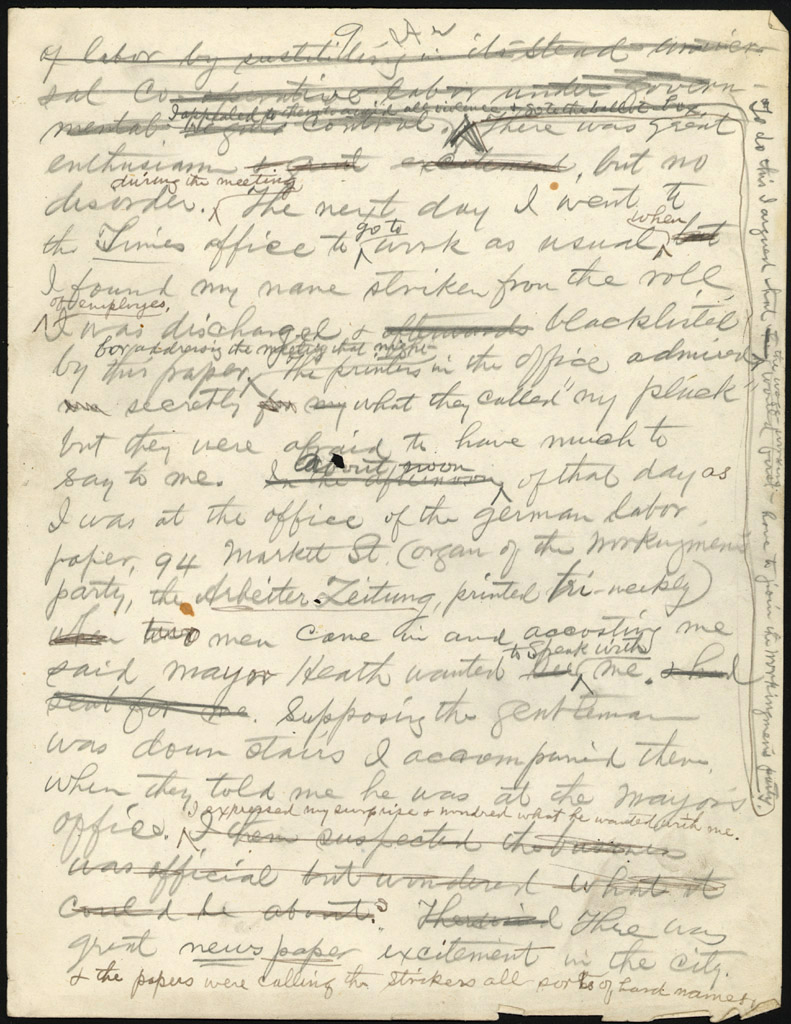 9
of labor by substituting in its stead univer-
sal Co-operative labor under govern-
I appealed to them to avoid all violence & go to the ballot box
mental control. There was great
enthusiasm excitement, but no
during the meeting
disorder. The next day I went to
go to when
the Times office to work as usual, but
I found my name striken from the roll
of employes,
I was discharged & afterwards blacklisted
for addressing the meeting that night
by this paper. The printers in the office admired
secretly for my what they called "my pluck"
but they were afraid to have much to
about noon
say to me. In the afternoon, of that day as
I was at the office of the german labor
paper, 94 Market St. (organ of the Workingmen's
party, the Arbeiter-Zeitung, printed tri-weekly)
when two men came in and accosting me
to speak with
said mayor Heath wanted me. & had
sent for me. Supposing the gentleman
was down stairs I accompanied them,
when they told me he was at the Mayor's
I expressed my surprise & wondred what he wanted with me.
office. I then suspected the business
was official but wondered what it
could be about? There was
great newspaper excitement in the city.
& the papers were calling the strikers all sorts of hard names;
To do this I argued that the would have to join the Workingmen's party.